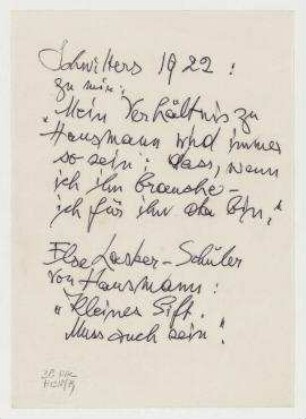 Schwitters 1922:
zu mir:
"Mein Verhältnis zu
Hausmann wird immer
so sein: dass, wenn
ich ihn brauche –
ich für ihn da bin."
Else Lasker-Schüler
von Hausmann:
"Kleines Gift.
Muss auch sein".